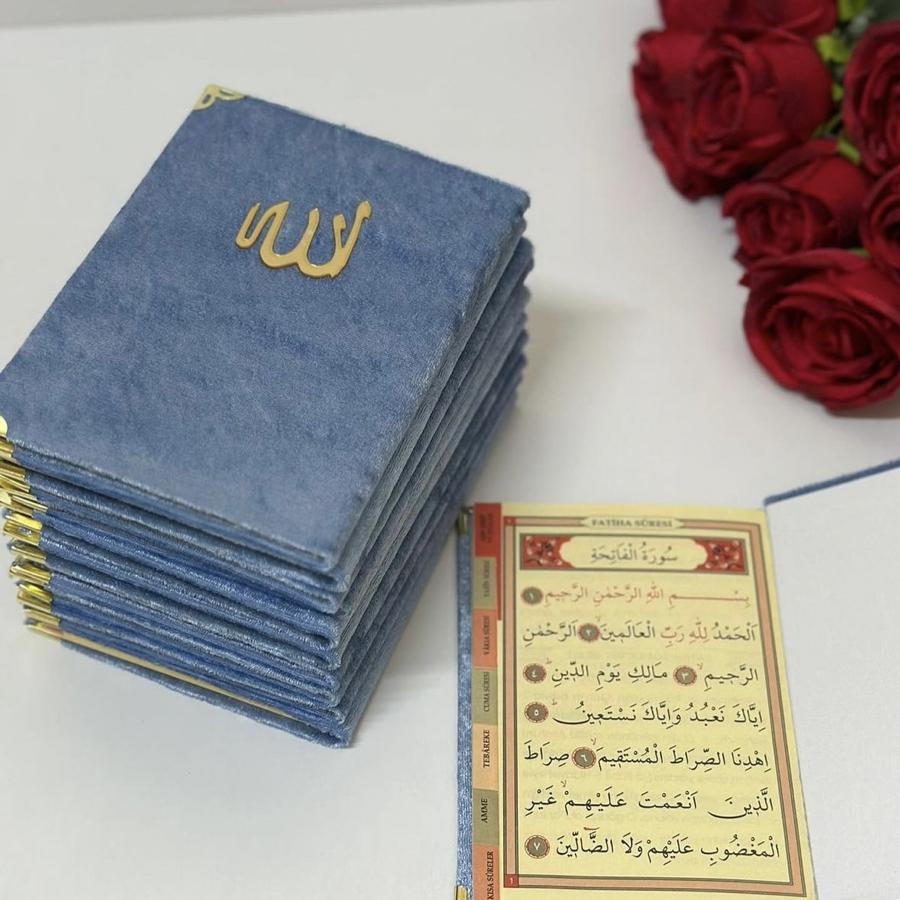 الله
FATİHA SÛRESİ
سُورَةُ الْفَاتِحَةِ
بِسْمِ اللهِ الرَّحْمٰنِ الرَّحِيمِ ١
اَلْحَمْدُ لِلّٰهِ رَبِّ الْعَالَمِينَ ٢ اَلرَّحْمٰنِ
الرَّحِيمِ ٣ مَالِكِ يَوْمِ الدِّينِ ٤
اِيَّاكَ نَعْبُدُ وَاِيَّاكَ نَسْتَعِينُ ٥
اِهْدِنَا الصِّرَاطَ الْمُسْتَقِيمَ ٦ صِرَاطَ
الَّذِينَ اَنْعَمْتَ عَلَيْهِمْ غَيْرِ
الْمَغْضُوبِ عَلَيْهِمْ وَلَا الضَّالِّينَ ٧
1
YASİN SÛRESİ
VÂKIA SÛRESİ
CUMA SÛRESİ
TEBÂREKE
AMME
KISA SÛRELER